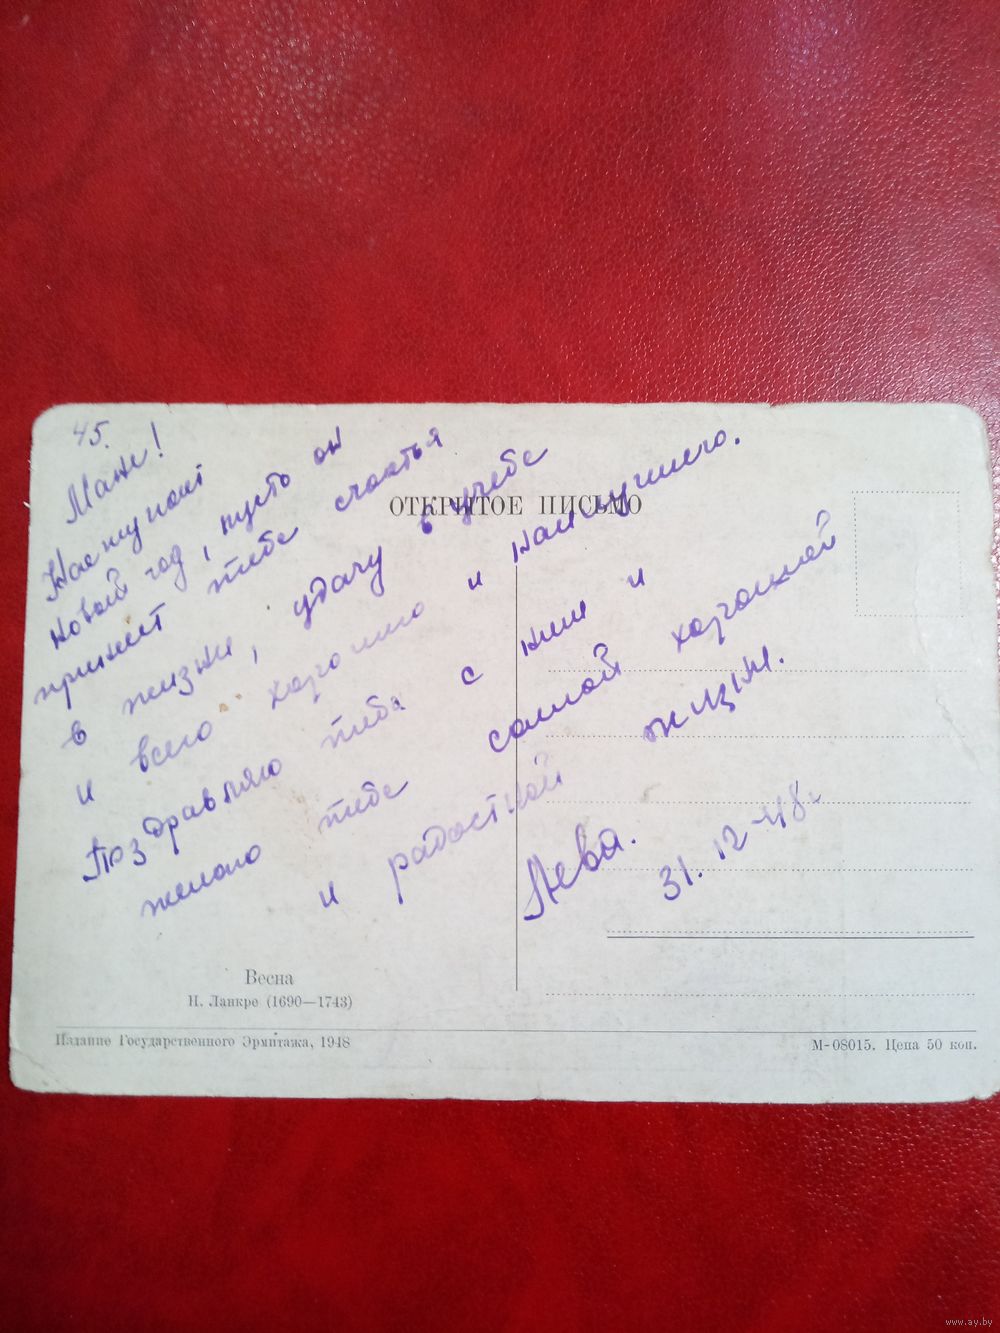 45.
Маня!
Наступает
новый год, пусть он
принесёт тебе счастья
в жизни, удачу в учебе
и всего хорошего и наилучшего.
Поздравляю тебя с ним и
желаю тебе самой хорошей
и радостной жизни.
Лева.
31.12-48г.
ОТКРЫТОЕ ПИСЬМО
Весна
Н. Ланкре (1690—1743)
Издание Государственного Эрмитажа, 1948
М-08015. Цена 50 коп.
www.ay.by